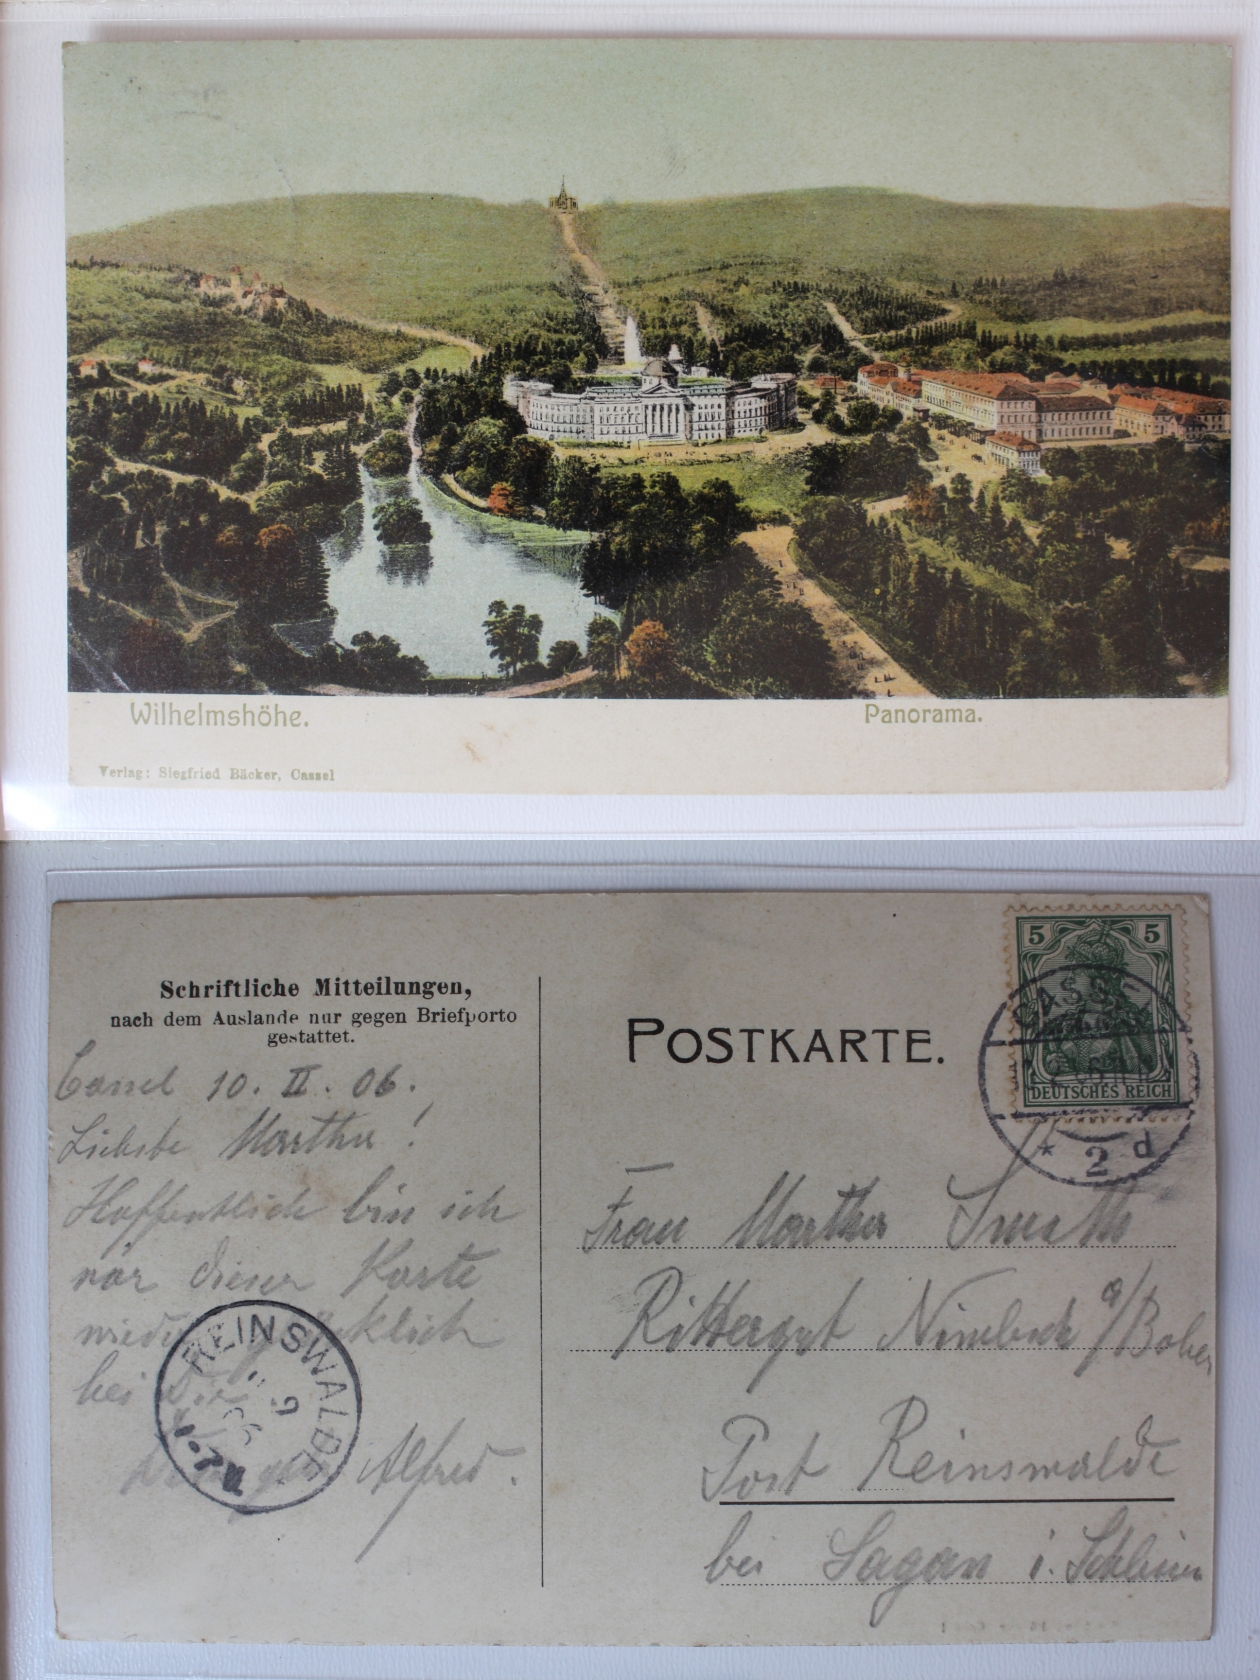 Wilhelmshöhe.
Panorama.
Verlag: Siegfried Bäcker, Cassel
Schriftliche Mitteilungen,
nach dem Auslande nur gegen Briefporto
gestattet.
POSTKARTE.
5 5
DEUTSCHES REICH
* 2 d
Cassel 10. II. 06.
Liebste Martha!
Hoffentlich bin ich
vor dieser Karte
wieder glücklich
bei Dir.
Alfred.
REINSWALDE
Frau Martha
Rittergut Nimbsch a/Bober
Post Reinswalde
bei Sagan i. Schlesien